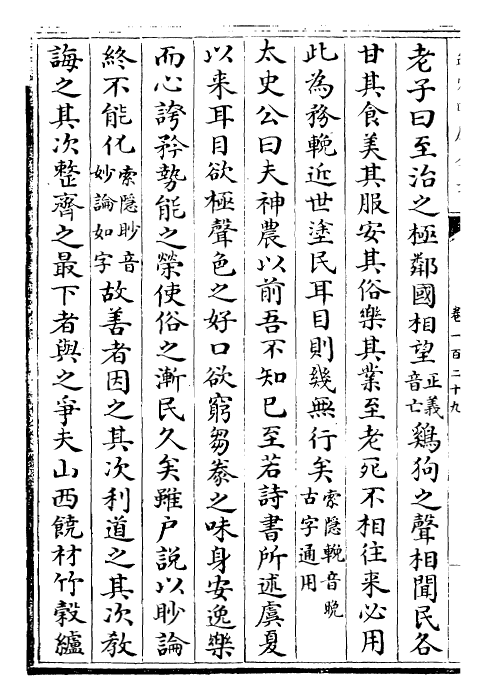 老子曰至治之極鄰國相望正義音亡雞狗之聲相聞民各
甘其食美其服安其俗樂其業至老死不相往来必用
此為務輓近世塗民耳目則幾無行矣索隱輓音晚古字通用
太史公曰夫神農以前吾不知已至若詩書所述虞夏
以来耳目欲極聲色之好口欲窮芻豢之味身安逸樂
而心誇矜勢能之榮使俗之漸民久矣雖户說以眇論
終不能化索隱眇音妙論如字故善者因之其次利道之其次教
誨之其次整齊之最下者與之爭夫山西饒材竹穀纑
卷一百二十九